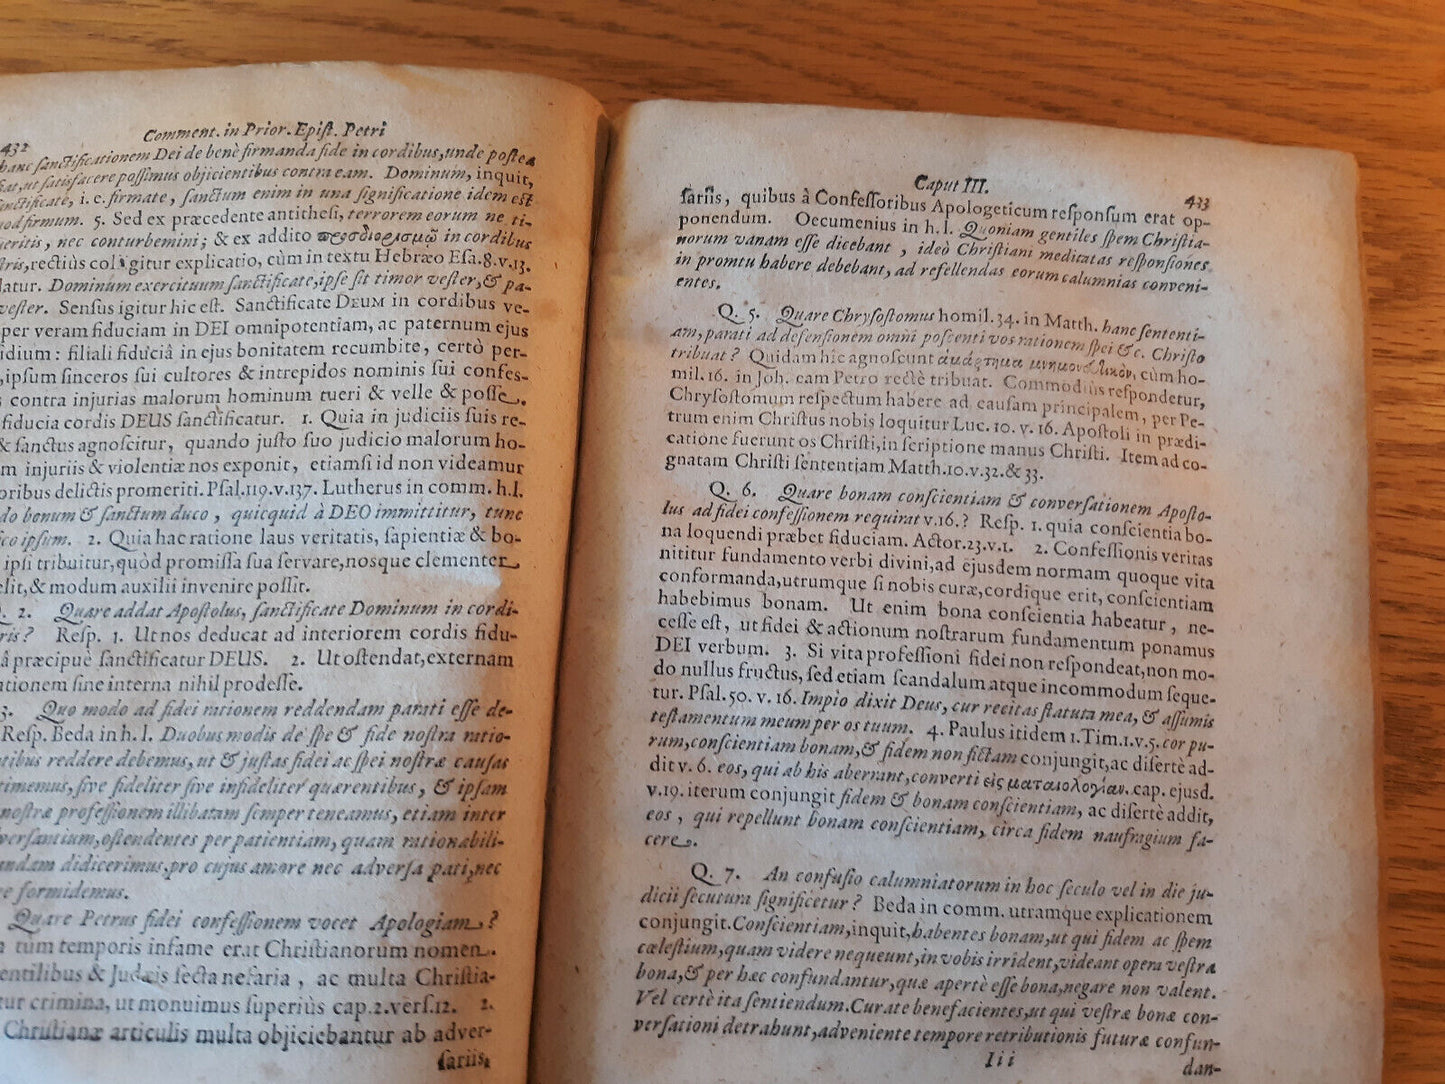 432 Comment. in Prior. Epiſt. Petri
hanc ſanctificationem Dei de benè firmanda fide in cordibus, unde poſtea
ſatisfacere poſſimus objicientibus contra eam. Dominum, inquit,
ſanctificate, i. e. firmate, ſanctum enim in una ſignificatione idem eſt
quod firmum. 5. Sed ex præcedente antitheſi, terrorem eorum ne ti-
mueritis, nec conturbemini; & ex addito προσδιορισμῷ in cordibus
veſtris, rectiùs colligitur explicatio, cùm in textu Hebræo Eſa. 8. v. 13.
Dominum exercituum ſanctificate, ipſe ſit timor veſter, & pa-
veſter. Senſus igitur hic eſt. Sanctificate DEUM in cordibus ve-
per veram fiduciam in DEI omnipotentiam, ac paternum ejus
idium: filiali fiduciâ in ejus bonitatem recumbite, certò per-
, ipſum ſinceros ſui cultores & intrepidos nominis ſui confeſ-
contra injurias malorum hominum tueri & velle & poſſe.
fiducia cordis DEUS ſanctificatur. 1. Quia in judiciis ſuis re-
& ſanctus agnoſcitur, quando juſto ſuo judicio malorum ho-
m injuriis & violentiæ nos exponit, etiamſi id non videamur
oribus delictis promeriti. Pſal. 119. v. 137. Lutherus in comm. h. l.
do bonum & ſanctum duco, quicquid à DEO immittitur, tunc
ipſum. 2. Quia hac ratione laus veritatis, ſapientiæ & bo-
ipſi tribuitur, quòd promiſſa ſua ſervare, nosque clementer
elit, & modum auxilii invenire poſſit.
Q. 2. Quare addat Apoſtolus, ſanctificate Dominum in cordi-
ris? Reſp. 1. Ut nos deducat ad interiorem cordis fidu-
â præcipuè ſanctificatur DEUS. 2. Ut oſtendat, externam
ationem ſine interna nihil prodeſſe.
3. Quo modo ad fidei rationem reddendam parati eſſe de-
Reſp. Beda in h. l. Duobus modis de ſpe & fide noſtra ratio-
tibus reddere debemus, ut & juſtas fidei ac ſpei noſtræ cauſas
timemus, ſive fideliter ſive infideliter quærentibus, & ipſam
noſtræ profeſſionem illibatam ſemper teneamus, etiam inter
verſantium, oſtendentes per patientiam, quam rationabili-
andam didicerimus, pro cujus amore nec adverſa pati, nec
re formidemus.
Quare Petrus fidei confeſſionem vocet Apologiam?
a tùm temporis infame erat Chriſtianorum nomen.
entilibus & Judæis ſecta nefaria, ac multa Chriſtia-
tur crimina, ut monuimus ſuperiùs cap. 2. verſ. 12. 2.
Chriſtianæ articulis multa objiciebantur ab adver-
ſariis,
Caput III. 433
ſariis, quibus à Confeſſoribus Apologeticum reſponſum erat op-
ponendum. Oecumenius in h. l. Quoniam gentiles ſpem Chriſtia-
norum vanam eſſe dicebant, ideò Chriſtiani meditatas reſponſiones
in promtu habere debebant, ad refellendas eorum calumnias conveni-
entes.
Q. 5. Quare Chryſoſtomus homil. 34. in Matth. hanc ſententi-
am, parati ad defenſionem omni poſcenti vos rationem ſpei &c. Chriſto
tribuat? Quidam hîc agnoſcunt ἁμάρτημα μνημονευτικὸν, cùm ho-
mil. 16. in Joh. eam Petro rectè tribuat. Commodiùs reſpondetur,
Chryſoſtomum reſpectum habere ad cauſam principalem, per Pe-
trum enim Chriſtus nobis loquitur Luc. 10. v. 16. Apoſtoli in prædi-
catione fuerunt os Chriſti, in ſcriptione manus Chriſti. Item ad co-
gnatam Chriſti ſententiam Matth. 10. v. 32. & 33.
Q. 6. Quare bonam conſcientiam & converſationem Apoſto-
lus ad fidei confeſſionem requirat v. 16.? Reſp. 1. quia conſcientia bo-
na loquendi præbet fiduciam. Actor. 23. v. 1. 2. Confeſſionis veritas
nititur fundamento verbi divini, ad ejusdem normam quoque vita
conformanda, utrumque ſi nobis curæ, cordique erit, conſcientiam
habebimus bonam. Ut enim bona conſcientia habeatur, ne-
ceſſe eſt, ut fidei & actionum noſtrarum fundamentum ponamus
DEI verbum. 3. Si vita profeſſioni fidei non reſpondeat, non mo-
do nullus fructus, ſed etiam ſcandalum atque incommodum ſeque-
tur. Pſal. 50. v. 16. Impio dixit Deus, cur recitas ſtatuta mea, & aſſumis
teſtamentum meum per os tuum. 4. Paulus itidem 1. Tim. 1. v. 5. cor pu-
rum, conſcientiam bonam, & fidem non fictam conjungit, ac diſertè ad-
dit v. 6. eos, qui ab his aberrant, converti εἰς ματαιολογίαν. cap. ejusd.
v. 19. iterum conjungit fidem & bonam conſcientiam, ac diſertè addit,
eos, qui repellunt bonam conſcientiam, circa fidem naufragium fa-
cere.
Q. 7. An confuſio calumniatorum in hoc ſeculo vel in die ju-
dicii ſecutura ſignificetur? Beda in comm. utramque explicationem
conjungit. Conſcientiam, inquit, habentes bonam, ut qui fidem ac ſpem
cæleſtium, quam videre nequeunt, in vobis irrident, videant opera veſtra
bona, & per hæc confundantur, quæ apertè eſſe bona, negare non valent.
Vel certè ita ſentiendum. Curate benefacientes, ut qui veſtræ bonæ con-
verſationi detrahunt, adveniente tempore retributionis futuræ confun-
Iii dan-